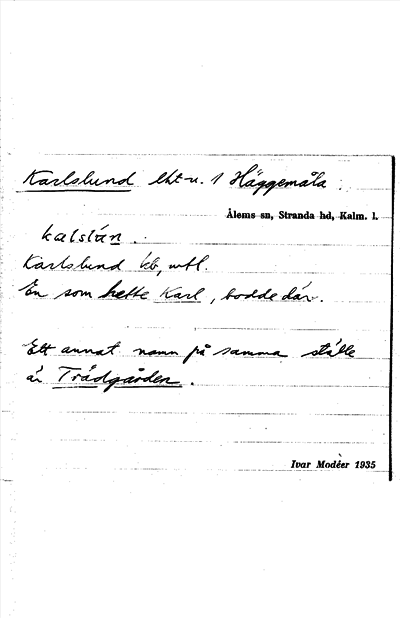 Karlslund lht u. 1 Häggemåla.
Ålems sn, Stranda hd, Kalm. l.
kalslún.
Karlslund kb, mtl.
En som hette Karl, bodde där.
Ett annat namn på samma ställe
är Trädgården.
Ivar Modéer 1935